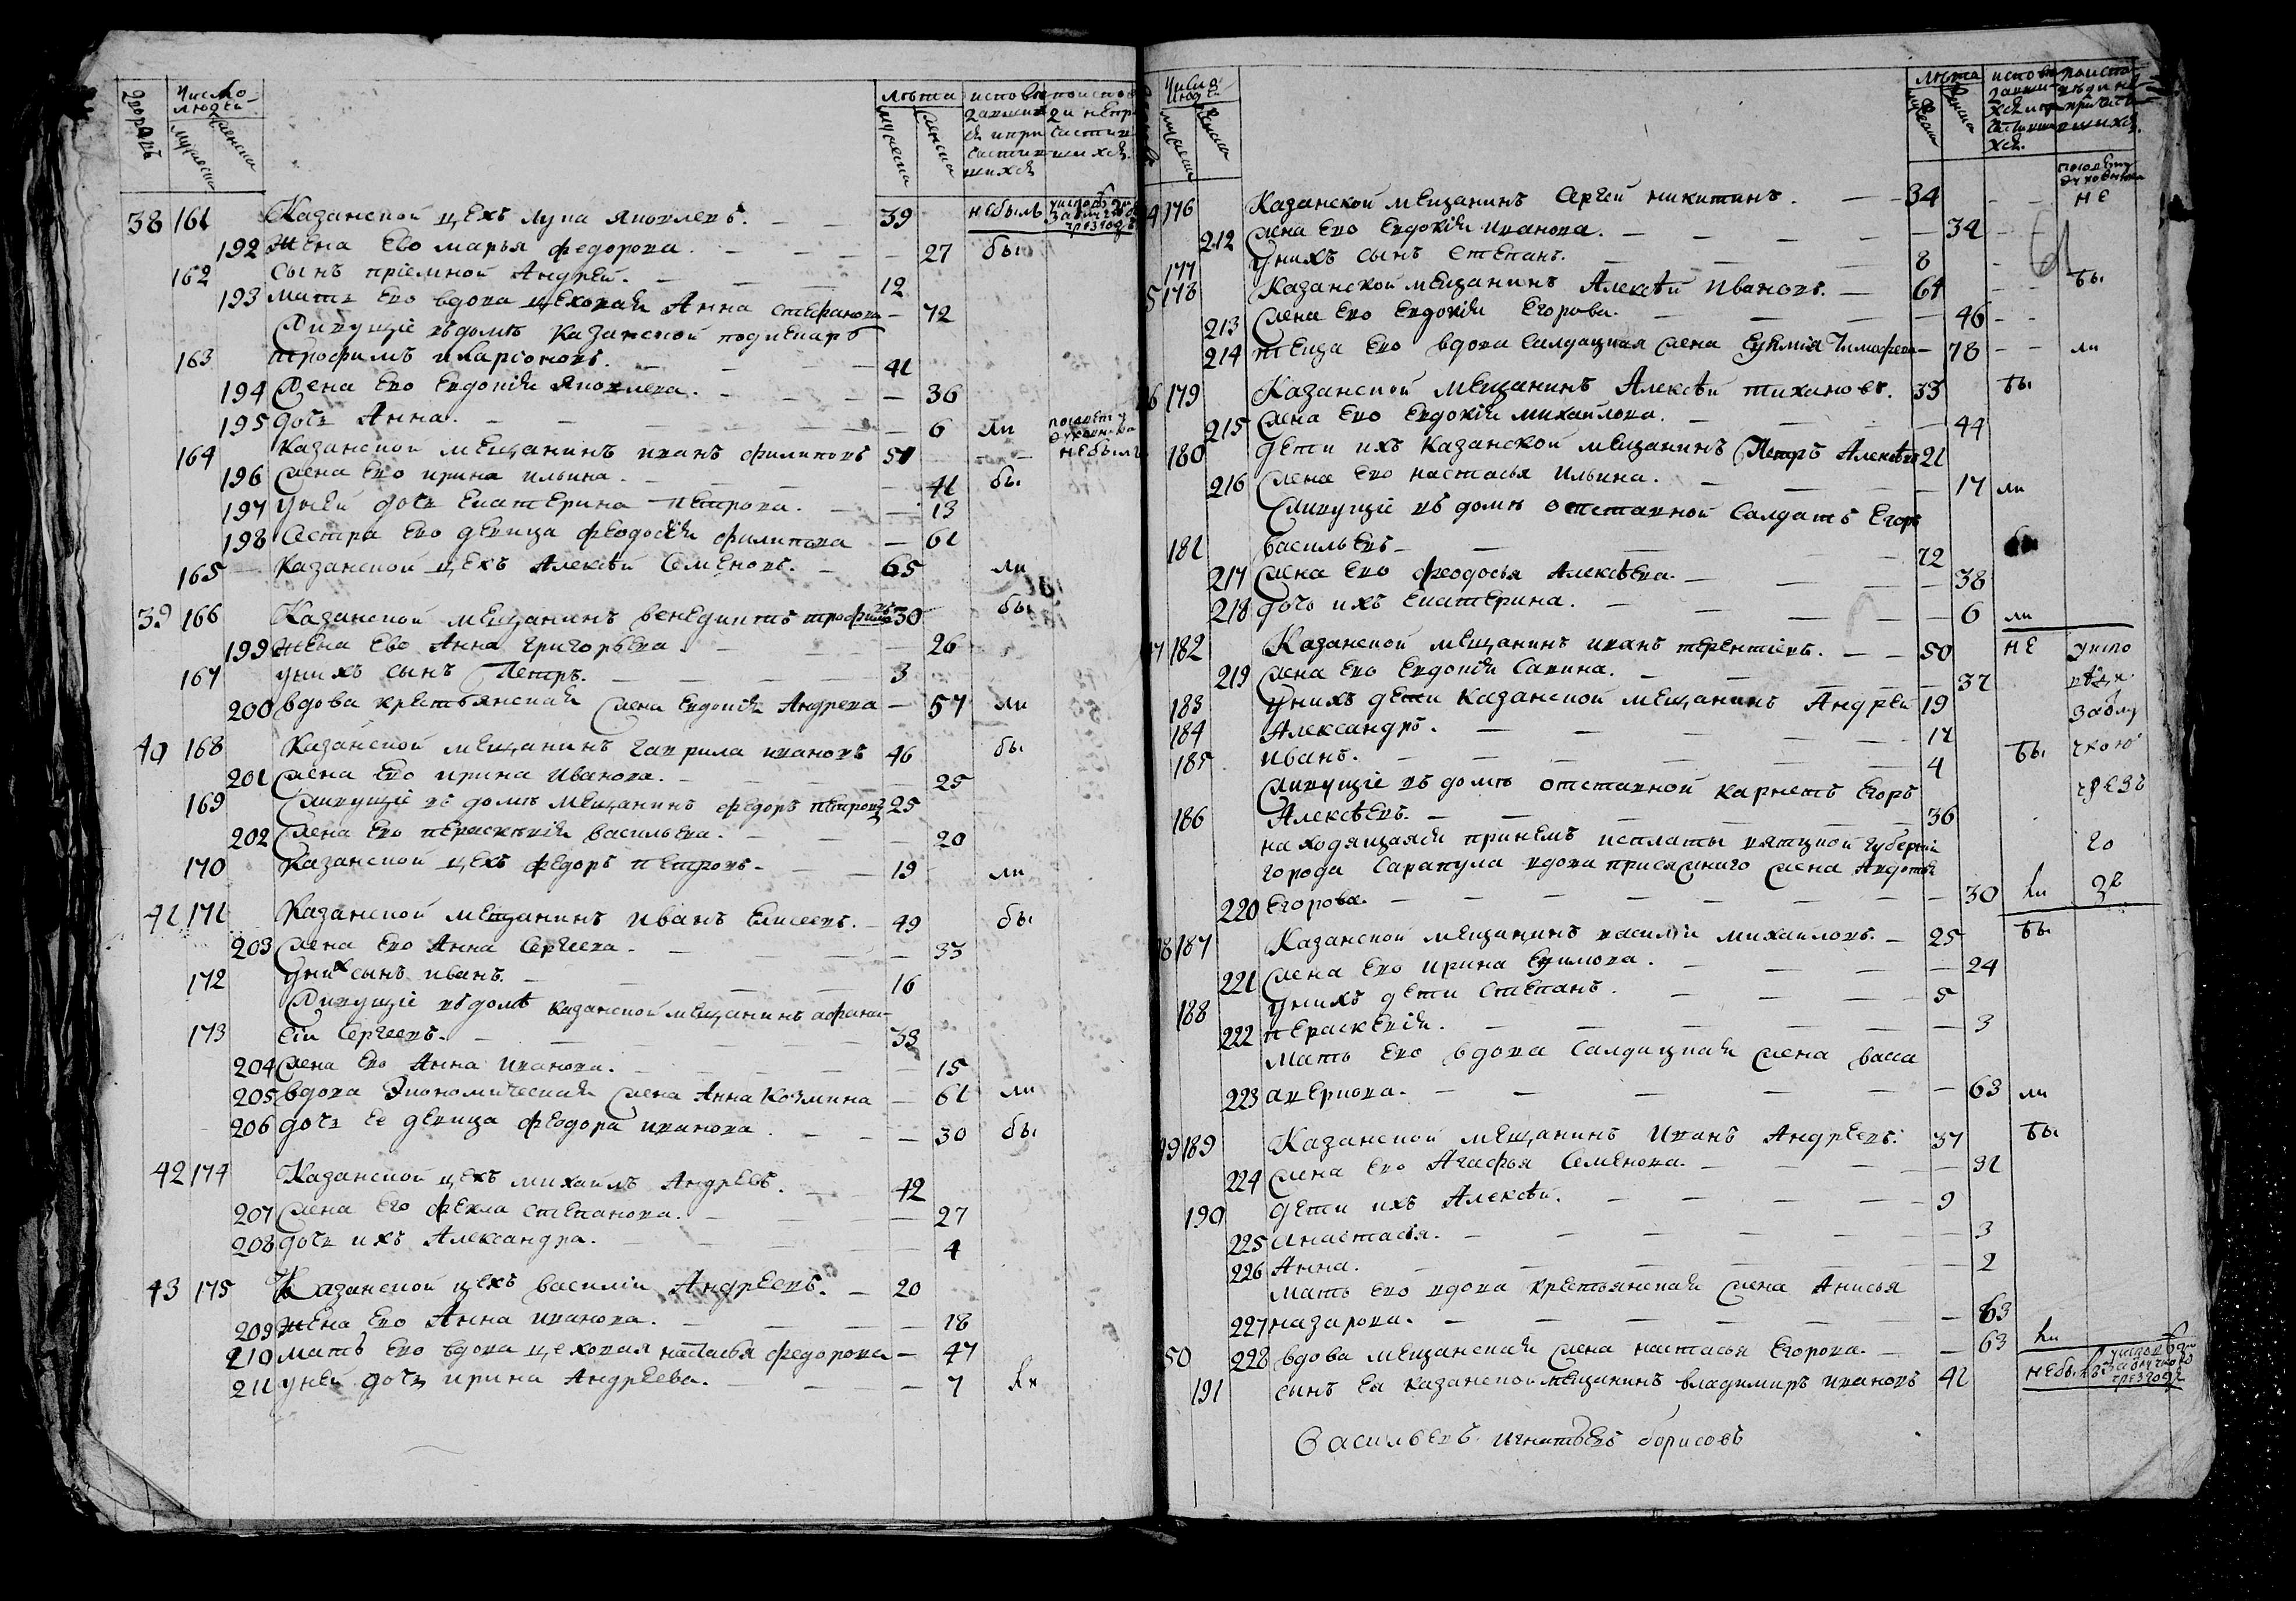 дворовъ
Число людей
мужеска
женска
лѣта
мужеска
женска
исповѣдавшихся и причастившихся
38 161 Казанской цехъ лупа яковлевъ. 39 небылъ
192 жена Ево марья федорова. 27 бы
162 Сынъ пріемной Андрей. 12
193 мать Ево вдова цеховая Анна стефанова 72
Живущіе въ домѣ казанской
163 трофимъ иларіоновъ. 41
194 Жена Ево Евдокія яковлева. 36
195 дочь Анна. 6 ли
164 Казанской мещанинъ иванъ филиповъ 51 небылъ
196 жена Ево ирина ильина. 41 бы
197 у ней дочь Екатерина петрова. 13
198 Сестра Ево девица феодосия филипова 61
165 Казанской цехъ Алексѣй Семеновъ. 65 ли
39 166 Казанской мещанинъ венедиктъ 30 бы
199 жена Ево Анна григорьева 26
167 у нихъ сынъ Петръ. 3
200 вдова крестьянская жена Евдокия Андреева 57 ли
40 168 Казанской мещанинъ гаврила ивановъ 46 бы
201 жена Ево ирина Иванова. 25
169 Живущіе въ домѣ мещанинъ федоръ петровъ 25
202 Жена Ево параскевия васильева. 20
170 Казанской цехъ федоръ петровъ. 19 ли
41 171 Казанской мещанинъ Иванъ Елисеевъ. 49 бы
203 жена Ево Анна Сергеева. 33
172 у них сынъ иванъ. 16
Живущіе въ домѣ казанской мещанинъ афана-
173 сій Сергеевъ. 33
204 жена Ево Анна иванова. 15
205 вдова Экономическая жена Анна козмина 61 ли
206 дочь Ее девица феодора иванова 30 бы
42 174 Казанской цехъ михаилъ Андреевъ. 42
207 жена Его фекла степанова. 27
208 дочь ихъ Александра. 4
43 175 Казанской цехъ василій Андреевъ. 20
209 жена Ево Анна иванова. 18
210 мать Ево вдова цеховая настасья федорова 47
211 у ней дочь ирина Андреева. 7 ли
Число людей
мужеска
женска
лѣта
мужеска
женска
176 Казанской мещанинъ Сергей никитинъ. 34 не
212 жена Ево Евдокія иванова. 34
177 у нихъ сынъ степанъ. 8
178 Казанской мещанинъ Алексѣй Ивановъ. 64 бы
213 жена Ево Евдокія Егорова. 46
214 теща Ево вдова салдацкая жена 78 ли
179 Казанской мещанинъ Алексѣй тихановъ. 33 бы
215 жена Ево Евдокія михайлова. 44
180 дети ихъ казанской мещанинъ Петръ Алексѣевъ 21
216 жена Ево настасья ильина. 17 ли
Живущіе въ домѣ отставной Салдатъ Егоръ
181 васильевъ 72 бы
217 жена Ево феодосья Алексѣева. 38
218 дочь ихъ Екатерина. 6 ли
182 Казанской мещанинъ иванъ терентіевъ. 50 не
219 жена Ево Евдокія Савина. 37
183 у нихъ дети казанской мещанинъ Андрей 19
184 Александръ. 17
185 иванъ. 4 бы
Живущіе въ домѣ отставной карнетъ Егоръ
186 Алексѣевъ. 36
находящаяся при немъ исплаты вятцкой губерніи
города Сарапула вдова присяжнаго жена Авдотья
220 Егорова. 30 ли
187 Казанской мещанинъ василій михайловъ. 25 бы
221 жена Ево ирина Ефимова. 24
188 у нихъ дети степанъ. 5
222 параскевия. 3
мать Ево вдова салдацкая жена васса
223 аверкова. 63 ли
189 Казанской мещанинъ Иванъ Андреевъ. 37 бы
224 жена Ево Агафья Семенова. 31
190 дети ихъ Алексѣй. 9
225 анастасья. 3
226 Анна. 2
мать Ево вдова крестьянская жена Анисья
227 назарова. 63
50 228 вдова мещанская жена настасья Егорова. 63 ли
191 сынъ Ея казанской мещанинъ владимиръ ивановъ 41 небылъ
Васильевъ игнатьевъ борисовъ